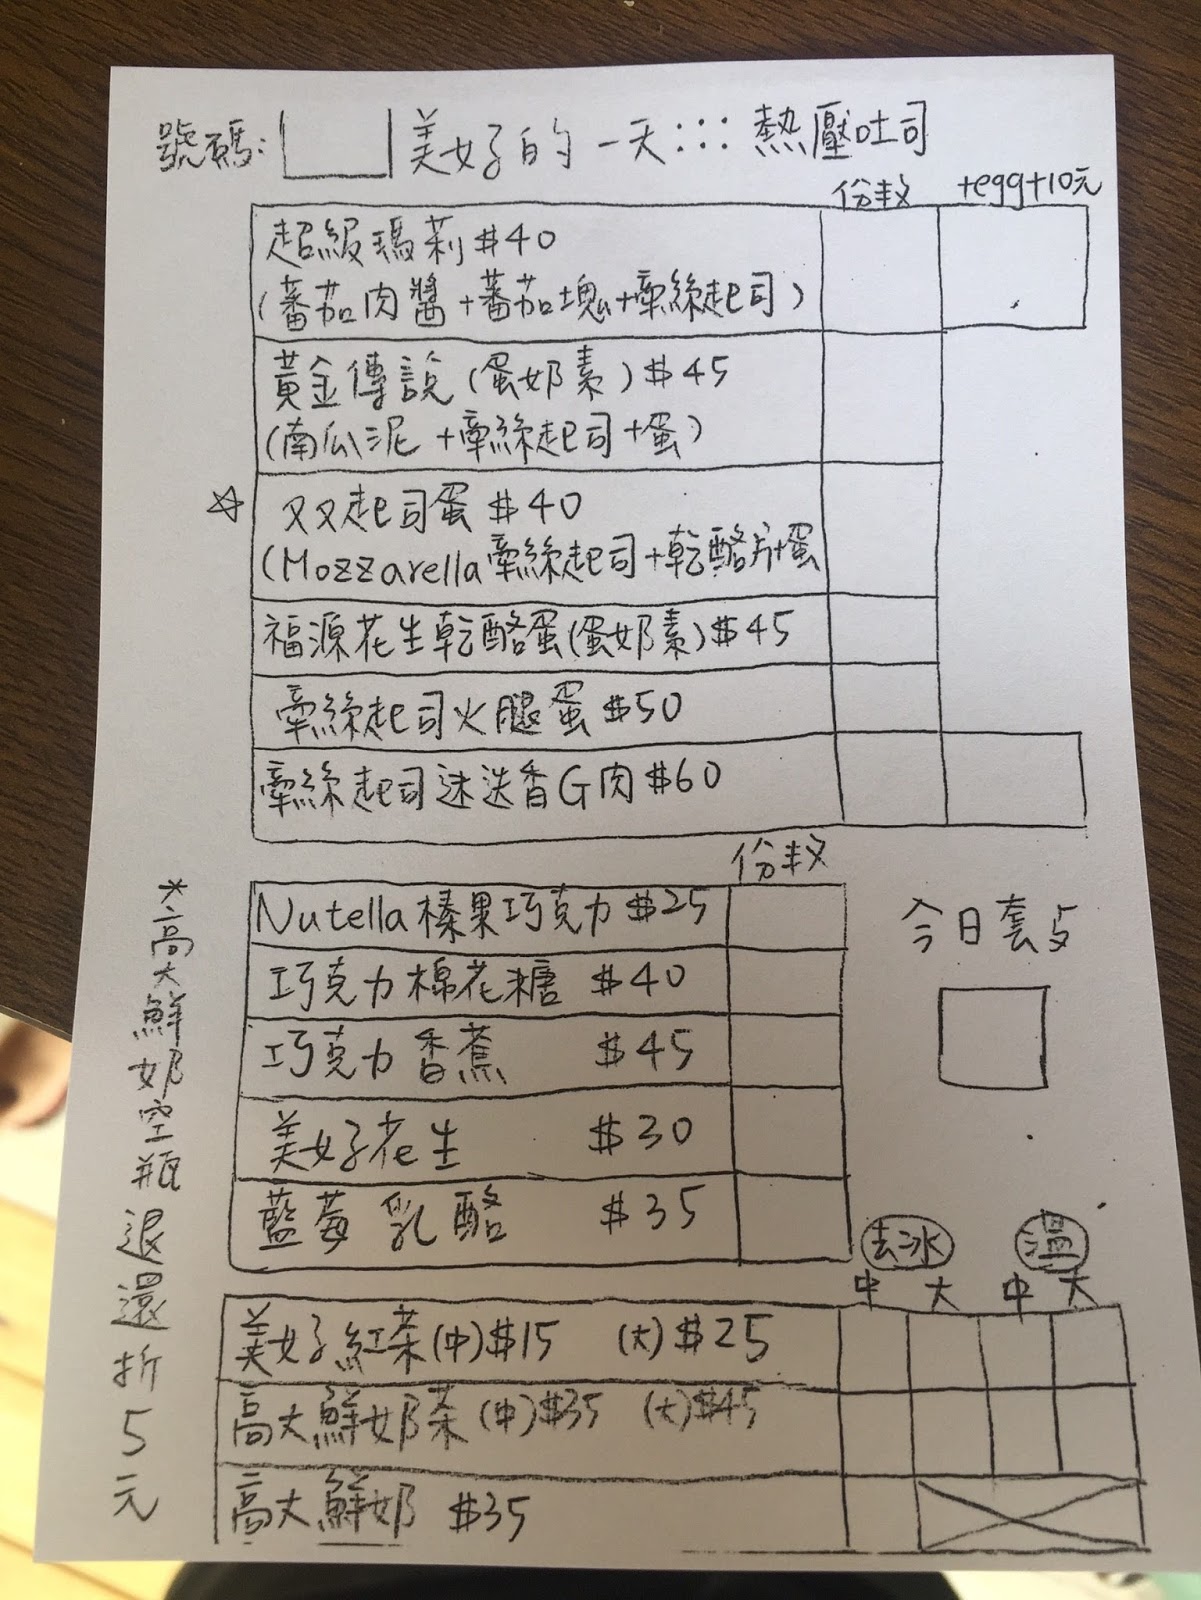 號碼: 美好的一天::: 熱壓吐司
份数 +egg+10元
超級瑪莉 $40
(蕃茄肉醬+蕃茄塊+牽絲起司)
黃金傳說 (蛋奶素) $45
(南瓜泥+牽絲起司+蛋)
☆ 双双起司蛋 $40
(Mozzarella牽絲起司+乾酪片+蛋
福源花生乾酪蛋(蛋奶素) $45
牽絲起司火腿蛋 $50
牽絲起司迷迭香G肉 $60
份数
Nutella榛果巧克力 $25
巧克力棉花糖 $40
巧克力香蕉 $45
美好花生 $30
藍莓乳酪 $35
今日套占
去冰 溫
中 大 中 大
美好紅茶(中)$15 (大)$25
高大鮮奶茶(中)$35 (大)$45
高大鮮奶 $35
*高大鮮奶空瓶退還折5元